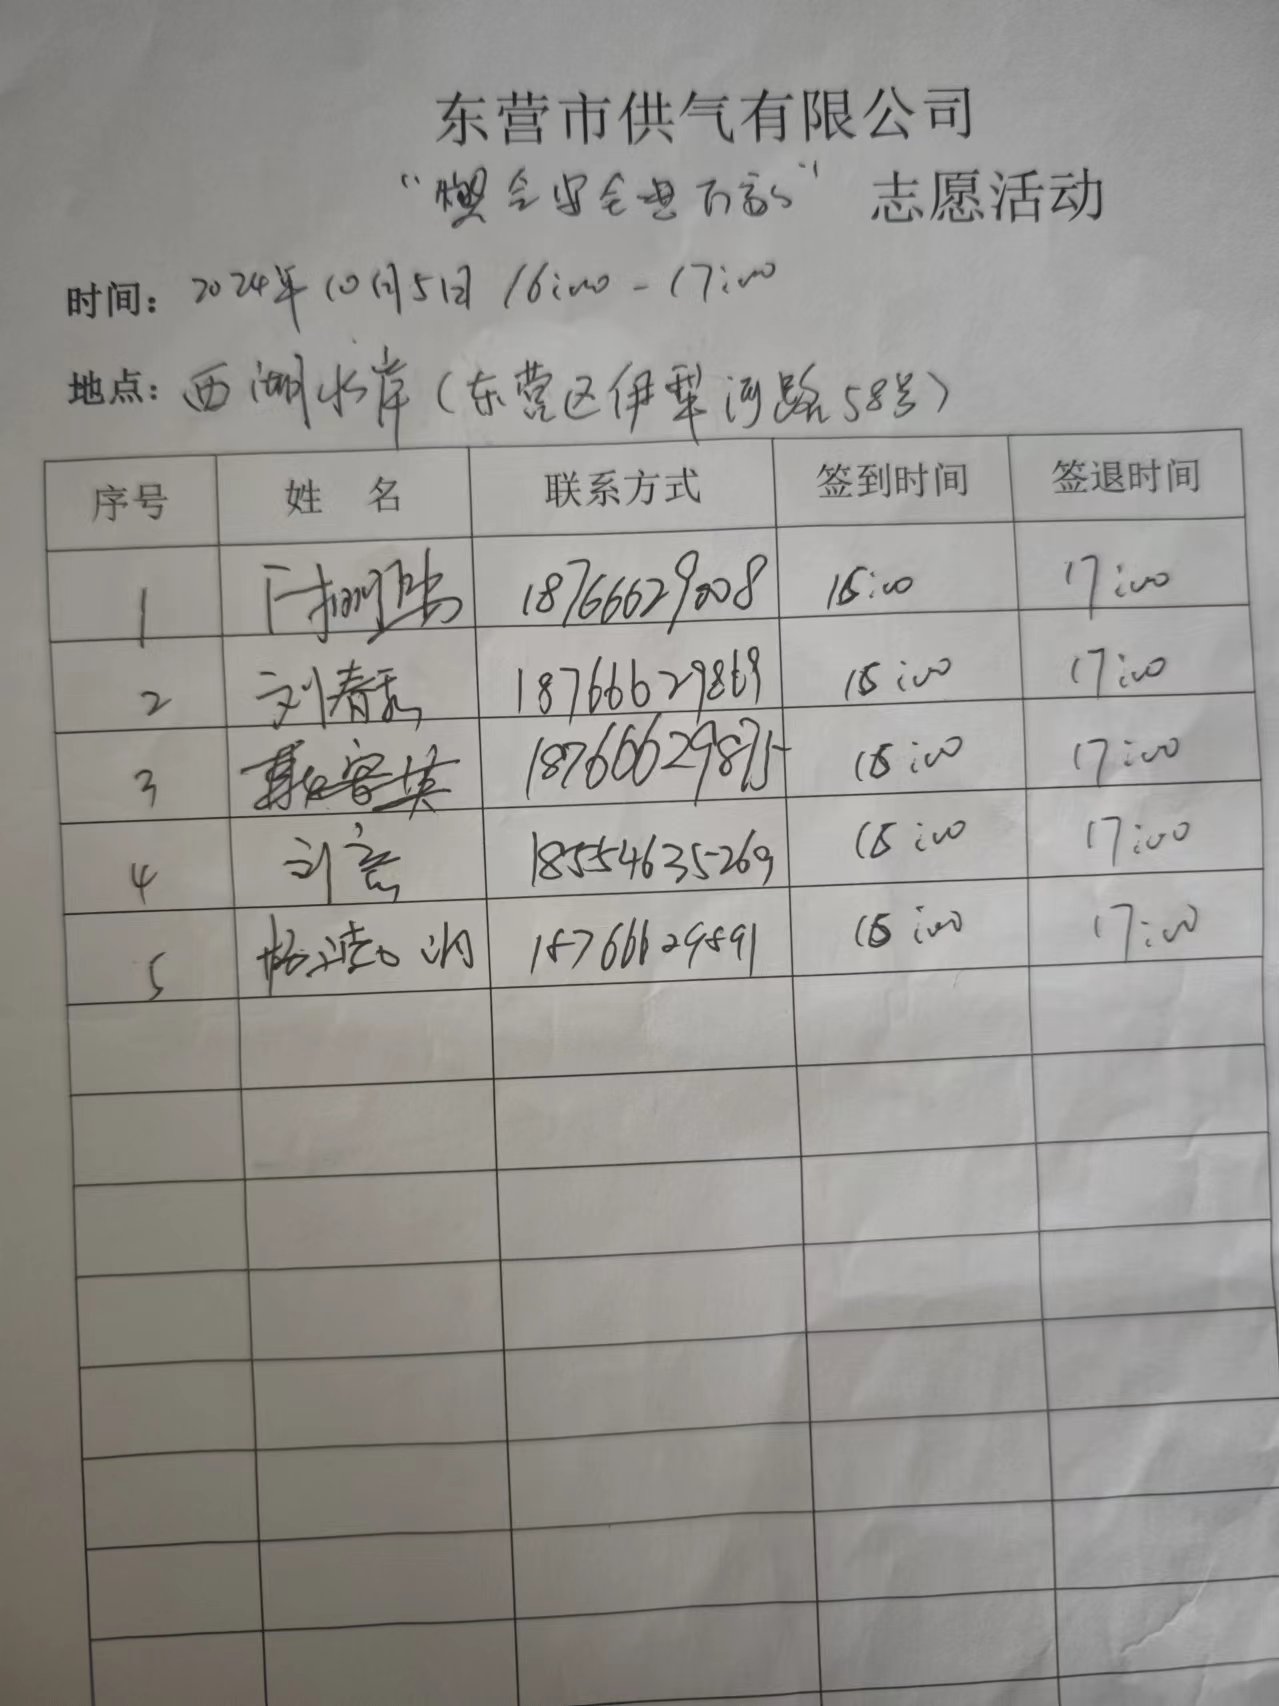 东营市供气有限公司
“燃气安全进万家” 志愿活动
时间: 2024年10月5日 16:00-17:00
地点: 西湖水岸(东营区伊犁河路58号)
序号 姓 名 联系方式 签到时间 签退时间
1 18766629008 16:00 17:00
2 刘春 18766629869 16:00 17:00
3 18766629875 16:00 17:00
4 刘 18554635269 16:00 17:00
5 杨 18766629891 16:00 17:00